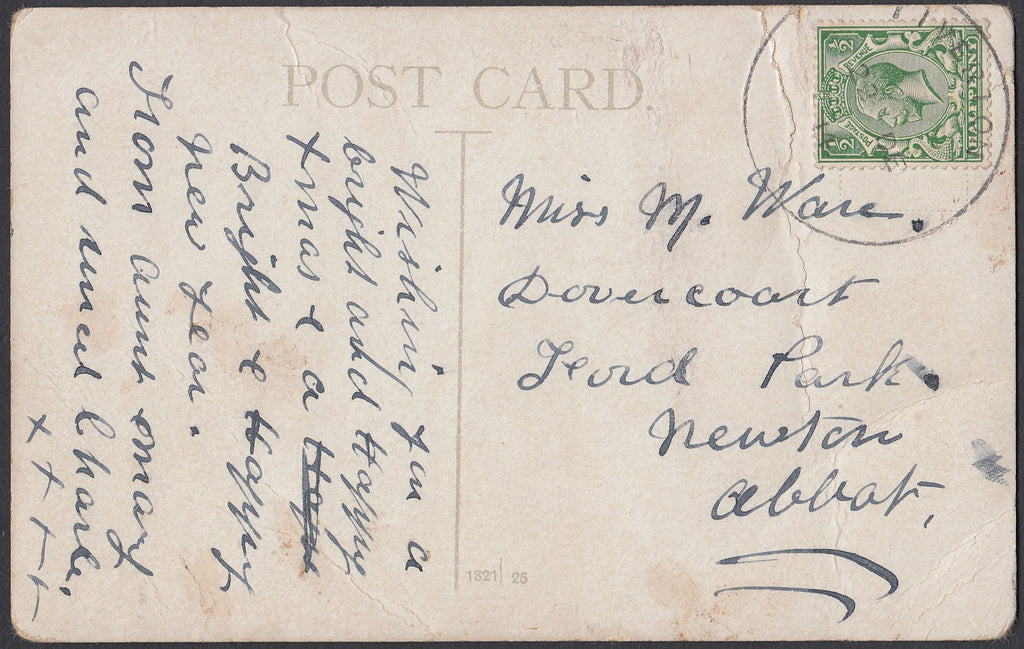 POST CARD.
Wishing you a
bright and Happy
Xmas & a Happy
Bright & Happy
New Year.
From Aunt Mary
and Uncle Charlie.
x x x x
Miss M. Ware.
Dovercourt
Ford Park.
Newton
Abbot,
1321 25
½ ½
POSTAGE REVENUE
HALFPENNY
TIVERTON
DE